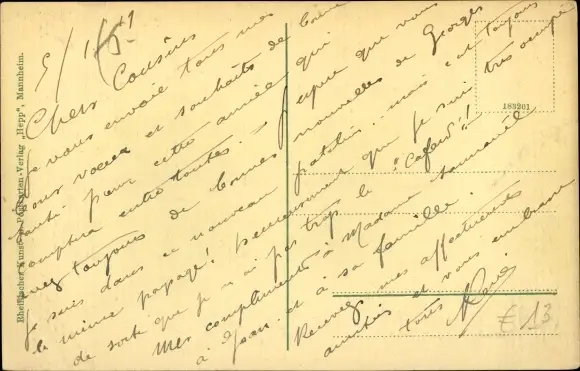 5/1/51
Chers Cousins
Je vous envoie tous mes
bons vœux et souhaits de bonne
santé pour cette année qui
comptera entre toutes. J'espère que vous
avez toujours de bonnes nouvelles de Georges
Je suis dans ce nouveau patelin mais c'est toujours
le même papagé! heureusement que je suis très occupé
de sorte que je n'ai pas trop le "Cafard"!
Mes compliments à Madame
à Jean et à sa famille.
Recevez mes affectueuses
amitiés et vous embrasse
tous
René
€ 13
183201
Rheinischer Kunst- u. Postkarten-Verlag „Hepp", Mannheim.